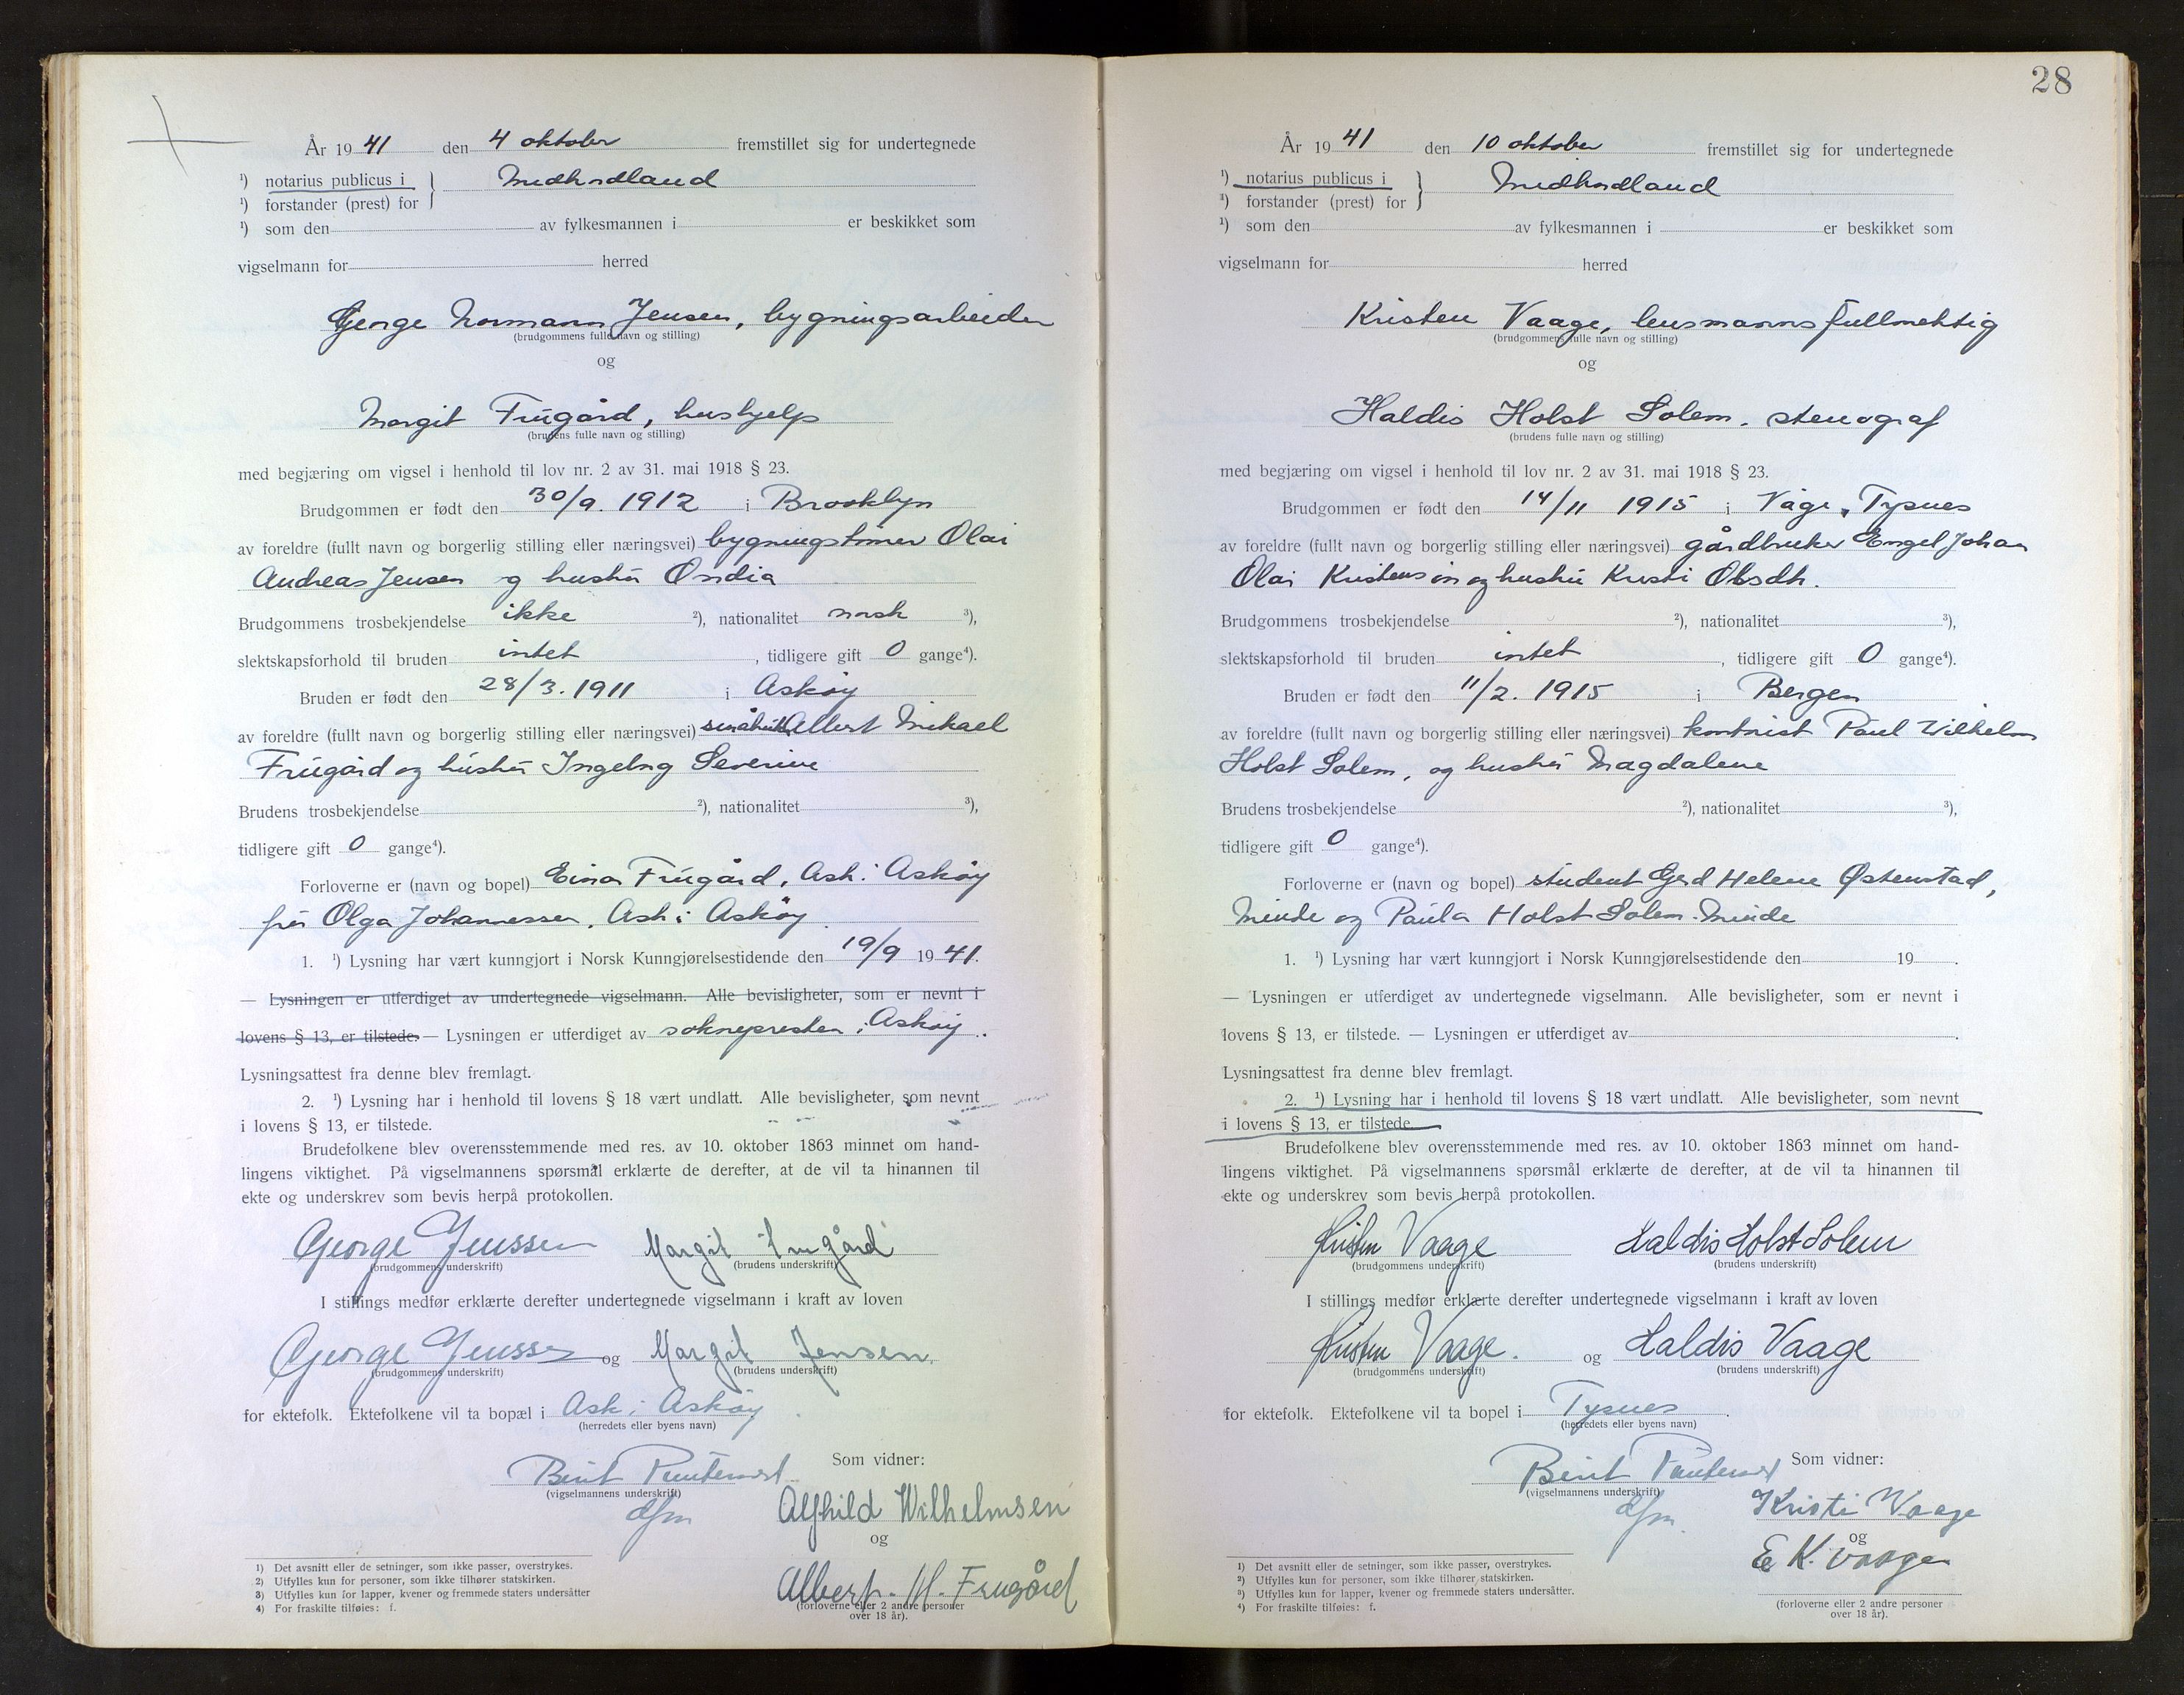 År 1941 den 4 oktober fremstillet sig for undertegnede
¹) notarius publicus i } Midhordland
¹) forstander (prest) for
¹) som den av fylkesmannen i er beskikket som
vigselmann for herred
George Normann Jensen, bygningsarbeider
(brudgommens fulle navn og stilling)
og
Margit Frugård, hushjelp
(brudens fulle navn og stilling)
med begjæring om vigsel i henhold til lov nr. 2 av 31. mai 1918 § 23.
Brudgommen er født den 30/9. 1912 i Brooklyn
av foreldre (fullt navn og borgerlig stilling eller næringsvei) Olai
Andreas Jensen og hustru
Brudgommens trosbekjendelse ikke ²), nationalitet norsk ³),
slektskapsforhold til bruden intet , tidligere gift 0 gange⁴).
Bruden er født den 28/3. 1911 i Askøy
av foreldre (fullt navn og borgerlig stilling eller næringsvei) Albert Mikael
Frugård og hustru Ingeborg Severine
Brudens trosbekjendelse ²), nationalitet ³),
tidligere gift 0 gange⁴).
Forloverne er (navn og bopel) Einar Frugård, Ask i Askøy
fru Olga Johannessen, Ask i Askøy
1. ¹) Lysning har vært kunngjort i Norsk Kunngjørelsestidende den 19/9 1941.
— Lysningen er utferdiget av undertegnede vigselmann. Alle bevisligheter, som er nevnt i
lovens § 13, er tilstede. — Lysningen er utferdiget av soknepresten i Askøy.
Lysningsattest fra denne blev fremlagt.
2. ¹) Lysning har i henhold til lovens § 18 vært undlatt. Alle bevisligheter, som nevnt
i lovens § 13, er tilstede.
Brudefolkene blev overensstemmende med res. av 10. oktober 1863 minnet om hand-
lingens viktighet. På vigselmannens spørsmål erklærte de derefter, at de vil ta hinannen til
ekte og underskrev som bevis herpå protokollen.
George Jenssen Margit Frugård
(brudgommens underskrift) (brudens underskrift)
I stillings medfør erklærte derefter undertegnede vigselmann i kraft av loven
George Jenssen og Margit Jensen.
(brudgommens underskrift) (brudens underskrift)
for ektefolk. Ektefolkene vil ta bopæl i Ask i Askøy
(herredets eller byens navn)
Som vidner:
Berit
(vigselmannens underskrift)
dfm
Alfhild Wilhelmsen
og
Albert M. Frugård
(forloverne eller 2 andre personer
over 18 år).
1) Det avsnitt eller de setninger, som ikke passer, overstrykes.
2) Utfylles kun for personer, som ikke tilhører statskirken.
3) Utfylles kun for lapper, kvener og fremmede staters undersåtter
4) For fraskilte tilføies: f.
28
År 1941 den 10 oktober fremstillet sig for undertegnede
¹) notarius publicus i } Midhordland
¹) forstander (prest) for
¹) som den av fylkesmannen i er beskikket som
vigselmann for herred
Kristen Vaage, lensmannsfullmektig
(brudgommens fulle navn og stilling)
og
Haldis Holst Solem, stenograf
(brudens fulle navn og stilling)
med begjæring om vigsel i henhold til lov nr. 2 av 31. mai 1918 § 23.
Brudgommen er født den 14/11 1915 i Våge, Tysnes
av foreldre (fullt navn og borgerlig stilling eller næringsvei) gårdbruker Engel Johan
Olai Kristensøn og hustru Kristi Olsdtr.
Brudgommens trosbekjendelse ²), nationalitet ³),
slektskapsforhold til bruden intet , tidligere gift 0 gange⁴).
Bruden er født den 11/2. 1915 i Bergen
av foreldre (fullt navn og borgerlig stilling eller næringsvei) kontorist Paul Wilhelm
Holst Solem, og hustru Magdalene
Brudens trosbekjendelse ²), nationalitet ³),
tidligere gift 0 gange⁴).
Forloverne er (navn og bopel) student Gerd Helene Østenstad,
Minde og Paula Holst Solem. Minde
1. ¹) Lysning har vært kunngjort i Norsk Kunngjørelsestidende den 19 .
— Lysningen er utferdiget av undertegnede vigselmann. Alle bevisligheter, som er nevnt i
lovens § 13, er tilstede. — Lysningen er utferdiget av .
Lysningsattest fra denne blev fremlagt.
2. ¹) Lysning har i henhold til lovens § 18 vært undlatt. Alle bevisligheter, som nevnt
i lovens § 13, er tilstede.
Brudefolkene blev overensstemmende med res. av 10. oktober 1863 minnet om hand-
lingens viktighet. På vigselmannens spørsmål erklærte de derefter, at de vil ta hinannen til
ekte og underskrev som bevis herpå protokollen.
Kristen Vaage Haldis Holst Solem
(brudgommens underskrift) (brudens underskrift)
I stillings medfør erklærte derefter undertegnede vigselmann i kraft av loven
Kristen Vaage. og Haldis Vaage
(brudgommens underskrift) (brudens underskrift)
for ektefolk. Ektefolkene vil ta bopel i Tysnes .
(herredets eller byens navn)
Som vidner:
Berit
(vigselmannens underskrift)
dfm.
Kristi Vaage
og
E K. Vaage
(forloverne eller 2 andre personer
over 18 år).
1) Det avsnitt eller de setninger, som ikke passer, overstrykes.
2) Utfylles kun for personer, som ikke tilhører statskirken.
3) Utfylles kun for lapper, kvener og fremmede staters undersåtter.
4) For fraskilte tilføies: f.